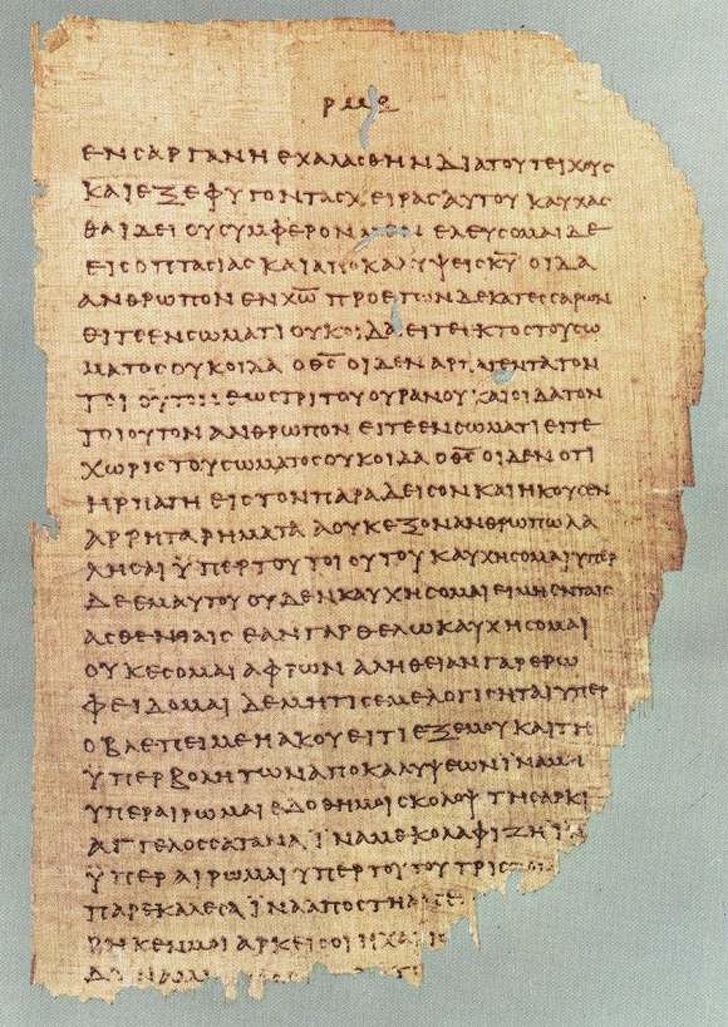 ρμε
ΕΝ ΣΑΡΓΑΝΗ ΕΧΑΛΑΣΘΗΝ ΔΙΑ ΤΟΥ ΤΕΙΧΟΥΣ
ΚΑΙ ΕΞΕΦΥΓΟΝ ΤΑΣ ΧΕΙΡΑΣ ΑΥΤΟΥ ΚΑΥΧΑΣ
ΘΑΙ ΔΕΙ ΟΥ ΣΥΜΦΕΡΟΝ ΕΛΕΥΣΟΜΑΙ ΔΕ
ΕΙΣ ΟΠΤΑΣΙΑΣ ΚΑΙ ΑΠΟΚΑΛΥΨΕΙΣ Κ̅Υ̅ ΟΙΔΑ
ΑΝΘΡΩΠΟΝ ΕΝ Χ̅Ω̅ ΠΡΟ ΕΤΩΝ ΔΕΚΑΤΕΣΣΑΡΩΝ
ΕΙΤΕ ΕΝ ΣΩΜΑΤΙ ΟΥΚ ΟΙΔΑ ΕΙΤΕ ΕΚΤΟΣ ΤΟΥ ΣΩ
ΜΑΤΟΣ ΟΥΚ ΟΙΔΑ Ο Θ̅Σ̅ ΟΙΔΕΝ ΑΡΠΑΓΕΝΤΑ ΤΟΝ
ΤΟΙΟΥΤΟΝ ΕΩΣ ΤΡΙΤΟΥ ΟΥΡΑΝΟΥ ΚΑΙ ΟΙΔΑ ΤΟΝ
ΤΟΙΟΥΤΟΝ ΑΝΘΡΩΠΟΝ ΕΙΤΕ ΕΝ ΣΩΜΑΤΙ ΕΙΤΕ
ΧΩΡΙΣ ΤΟΥ ΣΩΜΑΤΟΣ ΟΥΚ ΟΙΔΑ Ο Θ̅Σ̅ ΟΙΔΕΝ ΟΤΙ
ΗΡΠΑΓΗ ΕΙΣ ΤΟΝ ΠΑΡΑΔΕΙΣΟΝ ΚΑΙ ΗΚΟΥΣΕΝ
ΑΡΡΗΤΑ ΡΗΜΑΤΑ Α ΟΥΚ ΕΞΟΝ ΑΝΘΡΩΠΩ ΛΑ
ΛΗΣΑΙ ΫΠΕΡ ΤΟΥ ΤΟΙΟΥΤΟΥ ΚΑΥΧΗΣΟΜΑΙ ΥΠΕΡ
ΔΕ ΕΜΑΥΤΟΥ ΟΥΔΕΝ ΚΑΥΧΗΣΟΜΑΙ ΕΙ ΜΗ ΕΝ ΤΑΙΣ
ΑΣΘΕΝΕΙΑΙΣ ΕΑΝ ΓΑΡ ΘΕΛΩ ΚΑΥΧΗΣΟΜΑΙ
ΟΥΚ ΕΣΟΜΑΙ ΑΦΡΩΝ ΑΛΗΘΕΙΑΝ ΓΑΡ ΕΡΩ
ΦΕΙΔΟΜΑΙ ΔΕ ΜΗ ΤΙΣ ΕΜΕ ΛΟΓΙΣΗΤΑΙ ΥΠΕΡ
Ο ΒΛΕΠΕΙ ΜΕ Η ΑΚΟΥΕΙ ΤΙ ΕΞ ΕΜΟΥ ΚΑΙ ΤΗ
ΫΠΕΡΒΟΛΗ ΤΩΝ ΑΠΟΚΑΛΥΨΕΩΝ ΪΝΑ ΜΗ
ΥΠΕΡΑΙΡΩΜΑΙ ΕΔΟΘΗ ΜΟΙ ΣΚΟΛΟΨ ΤΗ ΣΑΡΚΙ
ΑΓΓΕΛΟΣ ΣΑΤΑΝΑ ΪΝΑ ΜΕ ΚΟΛΑΦΙΖΗ ΪΝΑ
ΫΠΕΡΑΙΡΩΜΑΙ ΥΠΕΡ ΤΟΥΤΟΥ ΤΡΙΣ
ΠΑΡΕΚΑΛΕΣΑ ΪΝΑ ΑΠΟΣΤΗ
ΡΗΚΕΝ ΜΟΙ ΑΡΚΕΙ ΣΟΙ Η ΧΑΡΙΣ